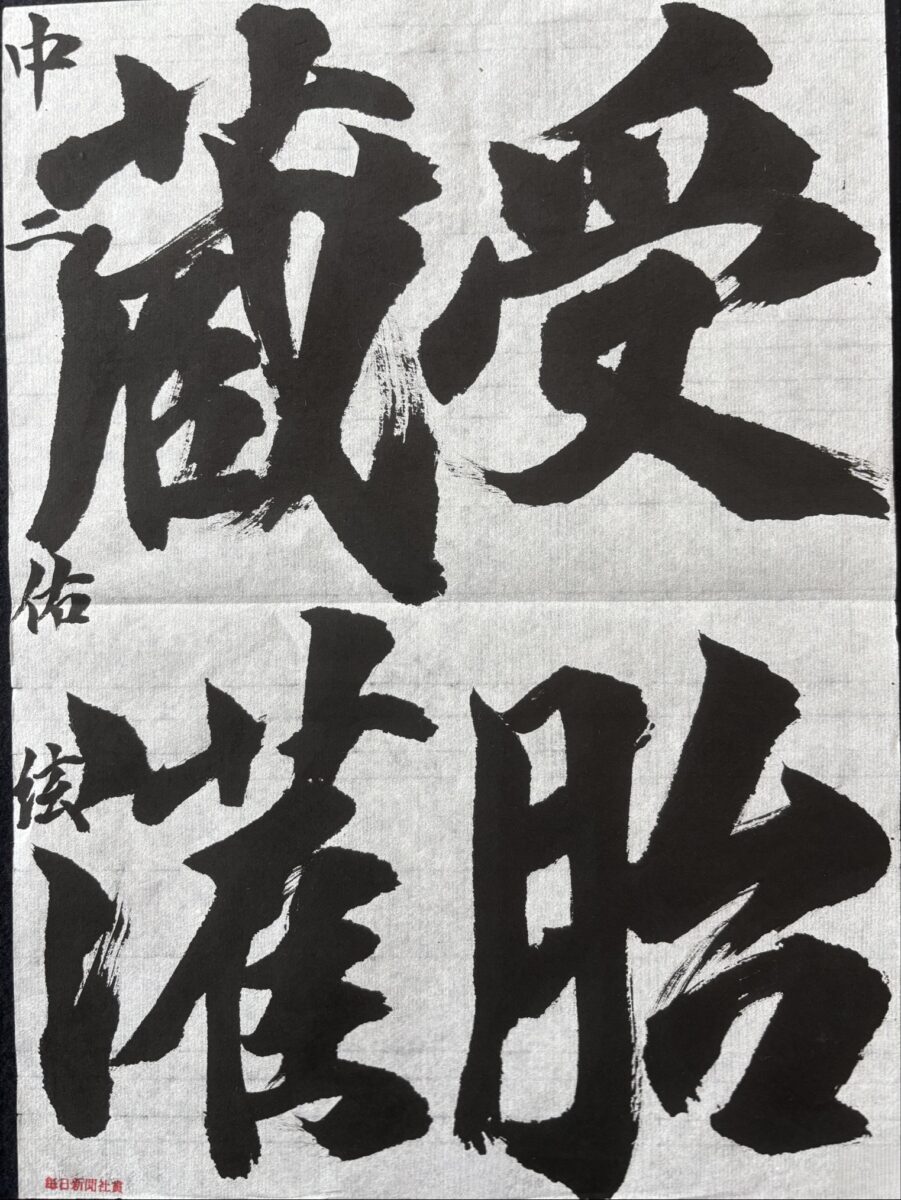 受胎
蔵灌
中二 佑絃
毎日新聞社賞